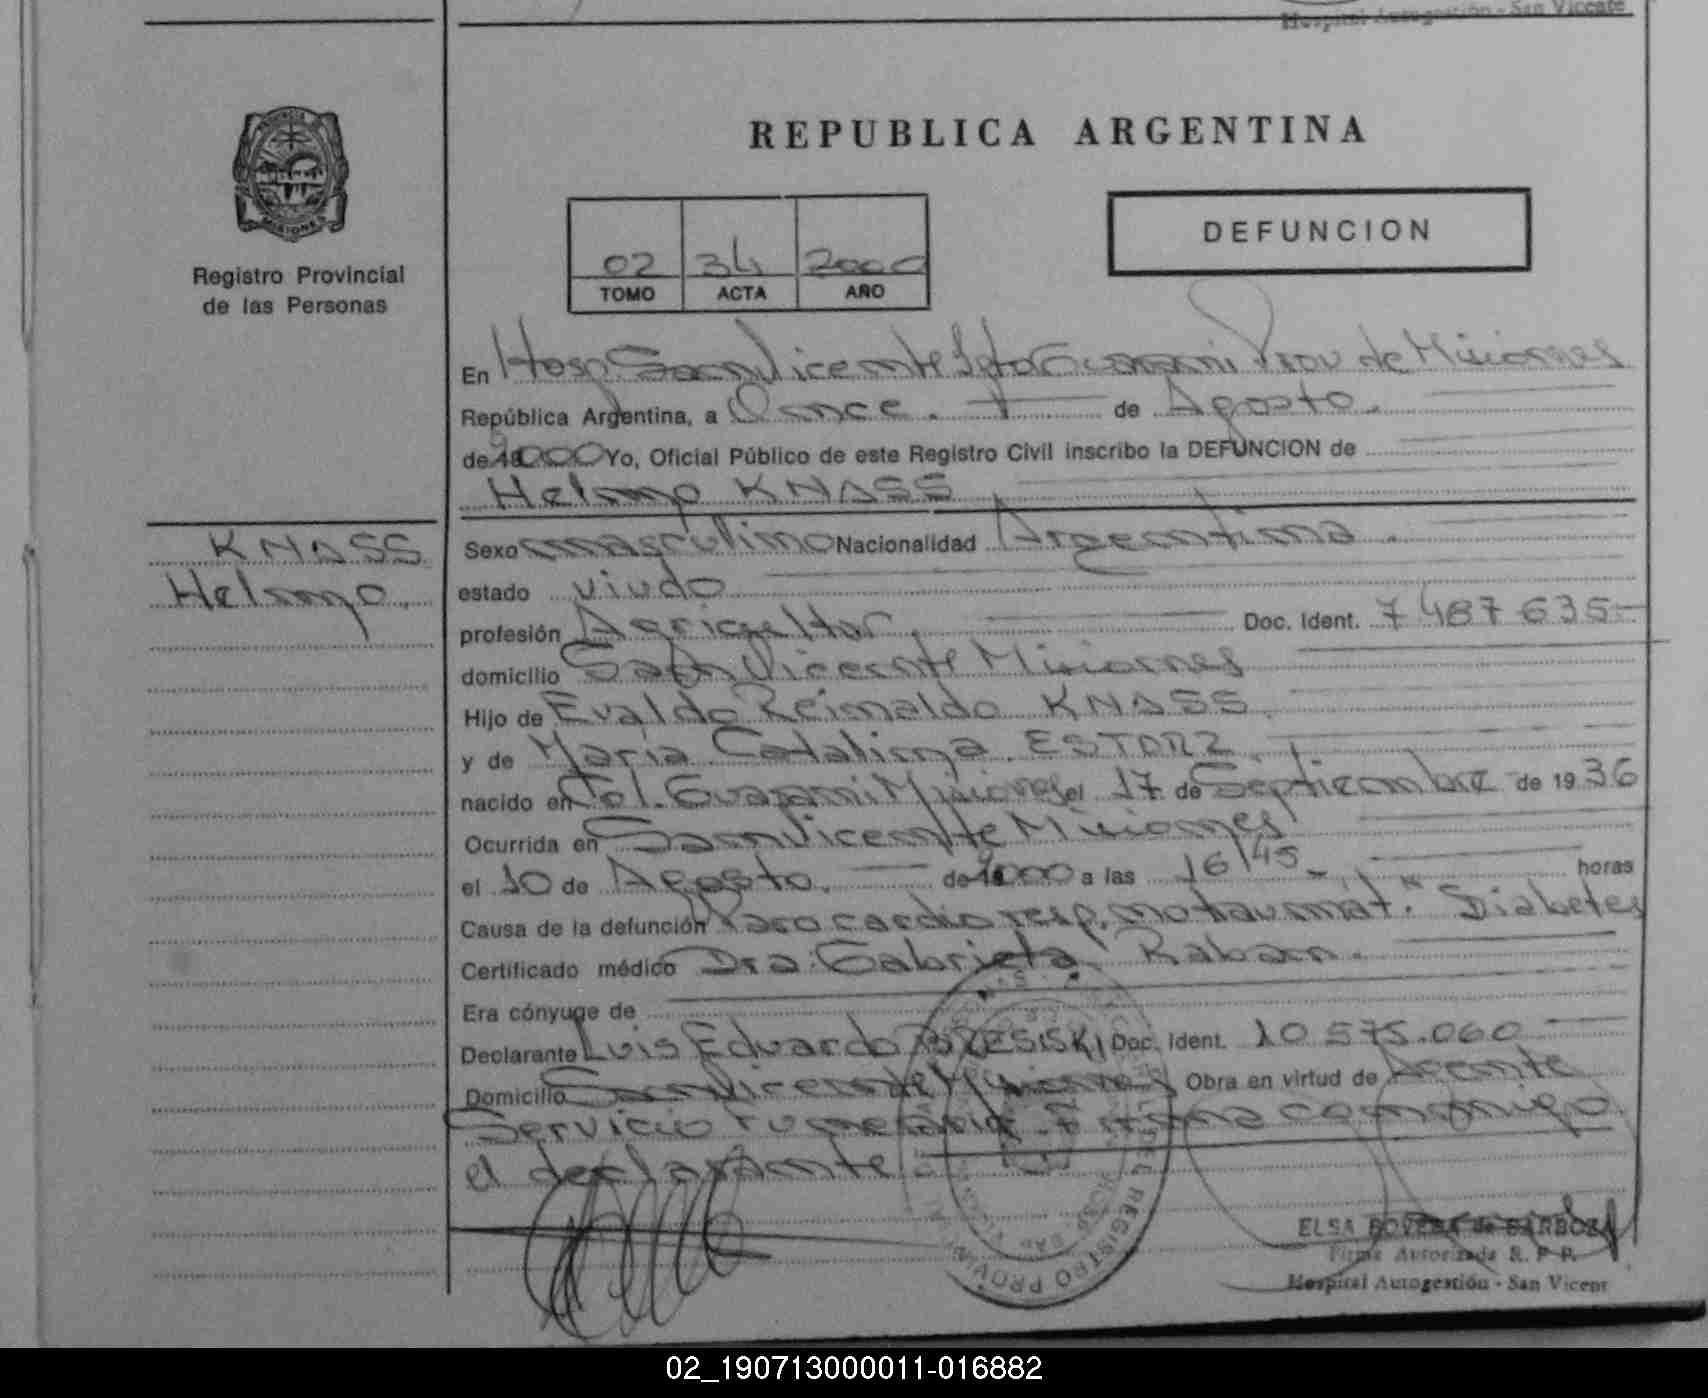 Hospital Autogestión - San Vicente
REPUBLICA ARGENTINA
PROVINCIA
MISIONES
Registro Provincial
de las Personas
DEFUNCION
02 34 2000
TOMO ACTA AÑO
En Hosp. San Vicente Dpto Guarani Prov de Misiones
República Argentina, a Once. de Agosto.
de 2000 Yo, Oficial Público de este Registro Civil inscribo la DEFUNCION de
Helmo KNASS
KNASS
Helmo.
Sexo masculino Nacionalidad Argentina.
estado viudo
profesión Agricultor. Doc. Ident. 7 487 635
domicilio San Vicente Misiones
Hijo de Evaldo Reinaldo KNASS.
y de Maria Catalina ESTORZ.
nacido en Col. Guarani Misiones el 17 de Septiembre de 1936
Ocurrida en San Vicente Misiones
el 10 de Agosto. de 2000 a las 16/45 horas
Causa de la defunción Paro cardio resp. no taumat. "Diabetes
Certificado médico Dra. Gabriela Raban.
Era cónyuge de
Declarante Luis Eduardo Doc. Ident. 10 575.060
Domicilio San Vicente Misiones Obra en virtud de Agente
Servicio funerario. Firma conmigo
el declarante
ELSA BOVERA de BARBOZA
Firma Autorizada R. P. P.
Hospital Autogestión - San Vicent
02_190713000011-016882